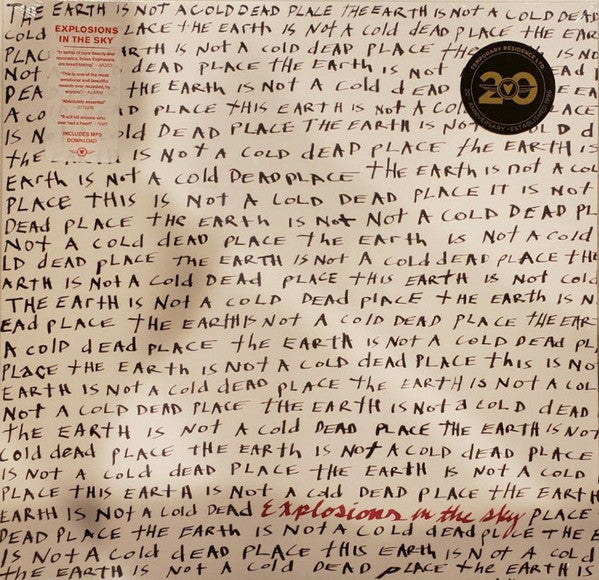 THE EARTH IS NOT A COLD DEAD PLACE THE EARTH IS NOT A COLD DEAD
COLD LACE tHE EARth IS NOt A COLD dEAD PLACE tHE EAR
PLAC RTH IS NOt A COLD DEAD PLACE
NOt dEAD PLACE THE EARTH IS NOt
DEA tHE EARTH IS NOt A Cold d EAD
A CO D PLACE tHIS EARTH IS NOt A COL
IS N OLD DEAD PLACE THE EARTH IS NOt LD d
tHE IS NOt A COLD dEAD PLACE tHE EARTH IS
EARth IS Not A COLD DEAD PLACE tHE EARth IS not A COL
PLACE THIS IS NOt A COLD DEAD PLACE IT IS NOT
DEAD PLACE tHE EARTH IS Not NOt A COLD DEAD PL
NOt A COLD dEAD PLACE tHE EARth IS NOt A COld
LD dEAD pLACE tHE EARTH IS NOt A COLD dEAD PLACE tHE
ARTH IS NOt A COLD DEAD PLACE tHIS EARTH IS NOt COLd
THE EARTH IS NOt A COLD DEAD PlACE tHE EARTH IS N
EAD PLACE THE EARTH IS NOt A COLD DEAD PLACE tHE EAR
A COLD dEAD PLACE tHE EARtH IS NOt A COLD DEAD PL
PLACE tHE EARTH IS NOt A COLD dEAD PLACE tHIS IS NO
EARTH IS NOt A COLD dEAD PLACE tHE EARTH IS NOt A COL
NOt A COLD DEAD PLACE tHE EARTH IS NOt A COLD DEAD
tHE EARTH IS NOt A COLD DEAD PLACE THE EARTH IS NOt
COLD dEAD PLACE tHE EARTH IS NOt A COLD DEAD PLACE
IS NOt A COLD dEAD PLACE tHE EARTH IS NOt A COLD
PLACE THIS EARTH IS NOt A COLD DEAD PLACE tHE EARtH
EARTH IS NOt A COLD DEAD Explosions in the sky PLACE
DEAD PLACE tHE EARTH IS NOt A COLD dEAD pLACE tHE E
IS NOt A COLd dEAD PLACE tHIS EARTH IS NOt A COLD
EARTH IS NOt A COLD DEAD PLACE tHE EARTH IS NOt
EXPLOSIONS
IN THE SKY
"In terms of pure beauty and
resonance, theses Explosions
are breathtaking" – MOJO
"This is one of the most
emotional and beautiful
records ever recorded, by
anyone"
"Absolutely essential"
"It will kill anyone who
ever had a heart"
INCLUDES MP3
DOWNLOAD!
TEMPORARY RESIDENCE LTD.
20
20TH ANNIVERSARY · ESTABLISHED 1996